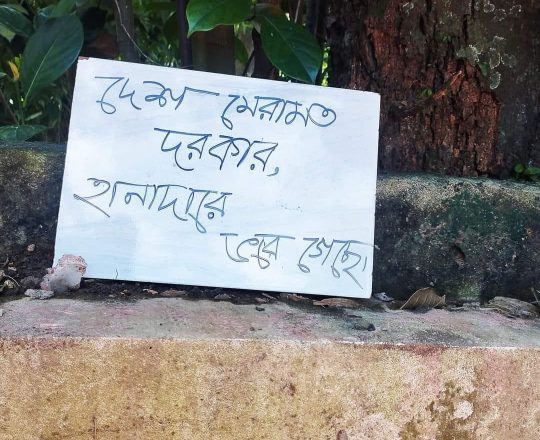 দেশ মেরামত
দরকার,
হানাদারে
ভরে গেছে।